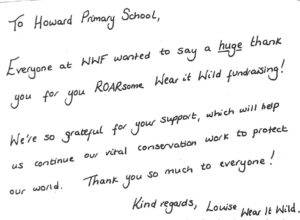 To Howard Primary School,
Everyone at WWF wanted to say a huge thank
you for you ROARsome Wear it Wild fundraising!
We're so grateful for your support, which will help
us continue our vital conservation work to protect
our world. Thank you so much to everyone!
Kind regards, Louise Wear It Wild.